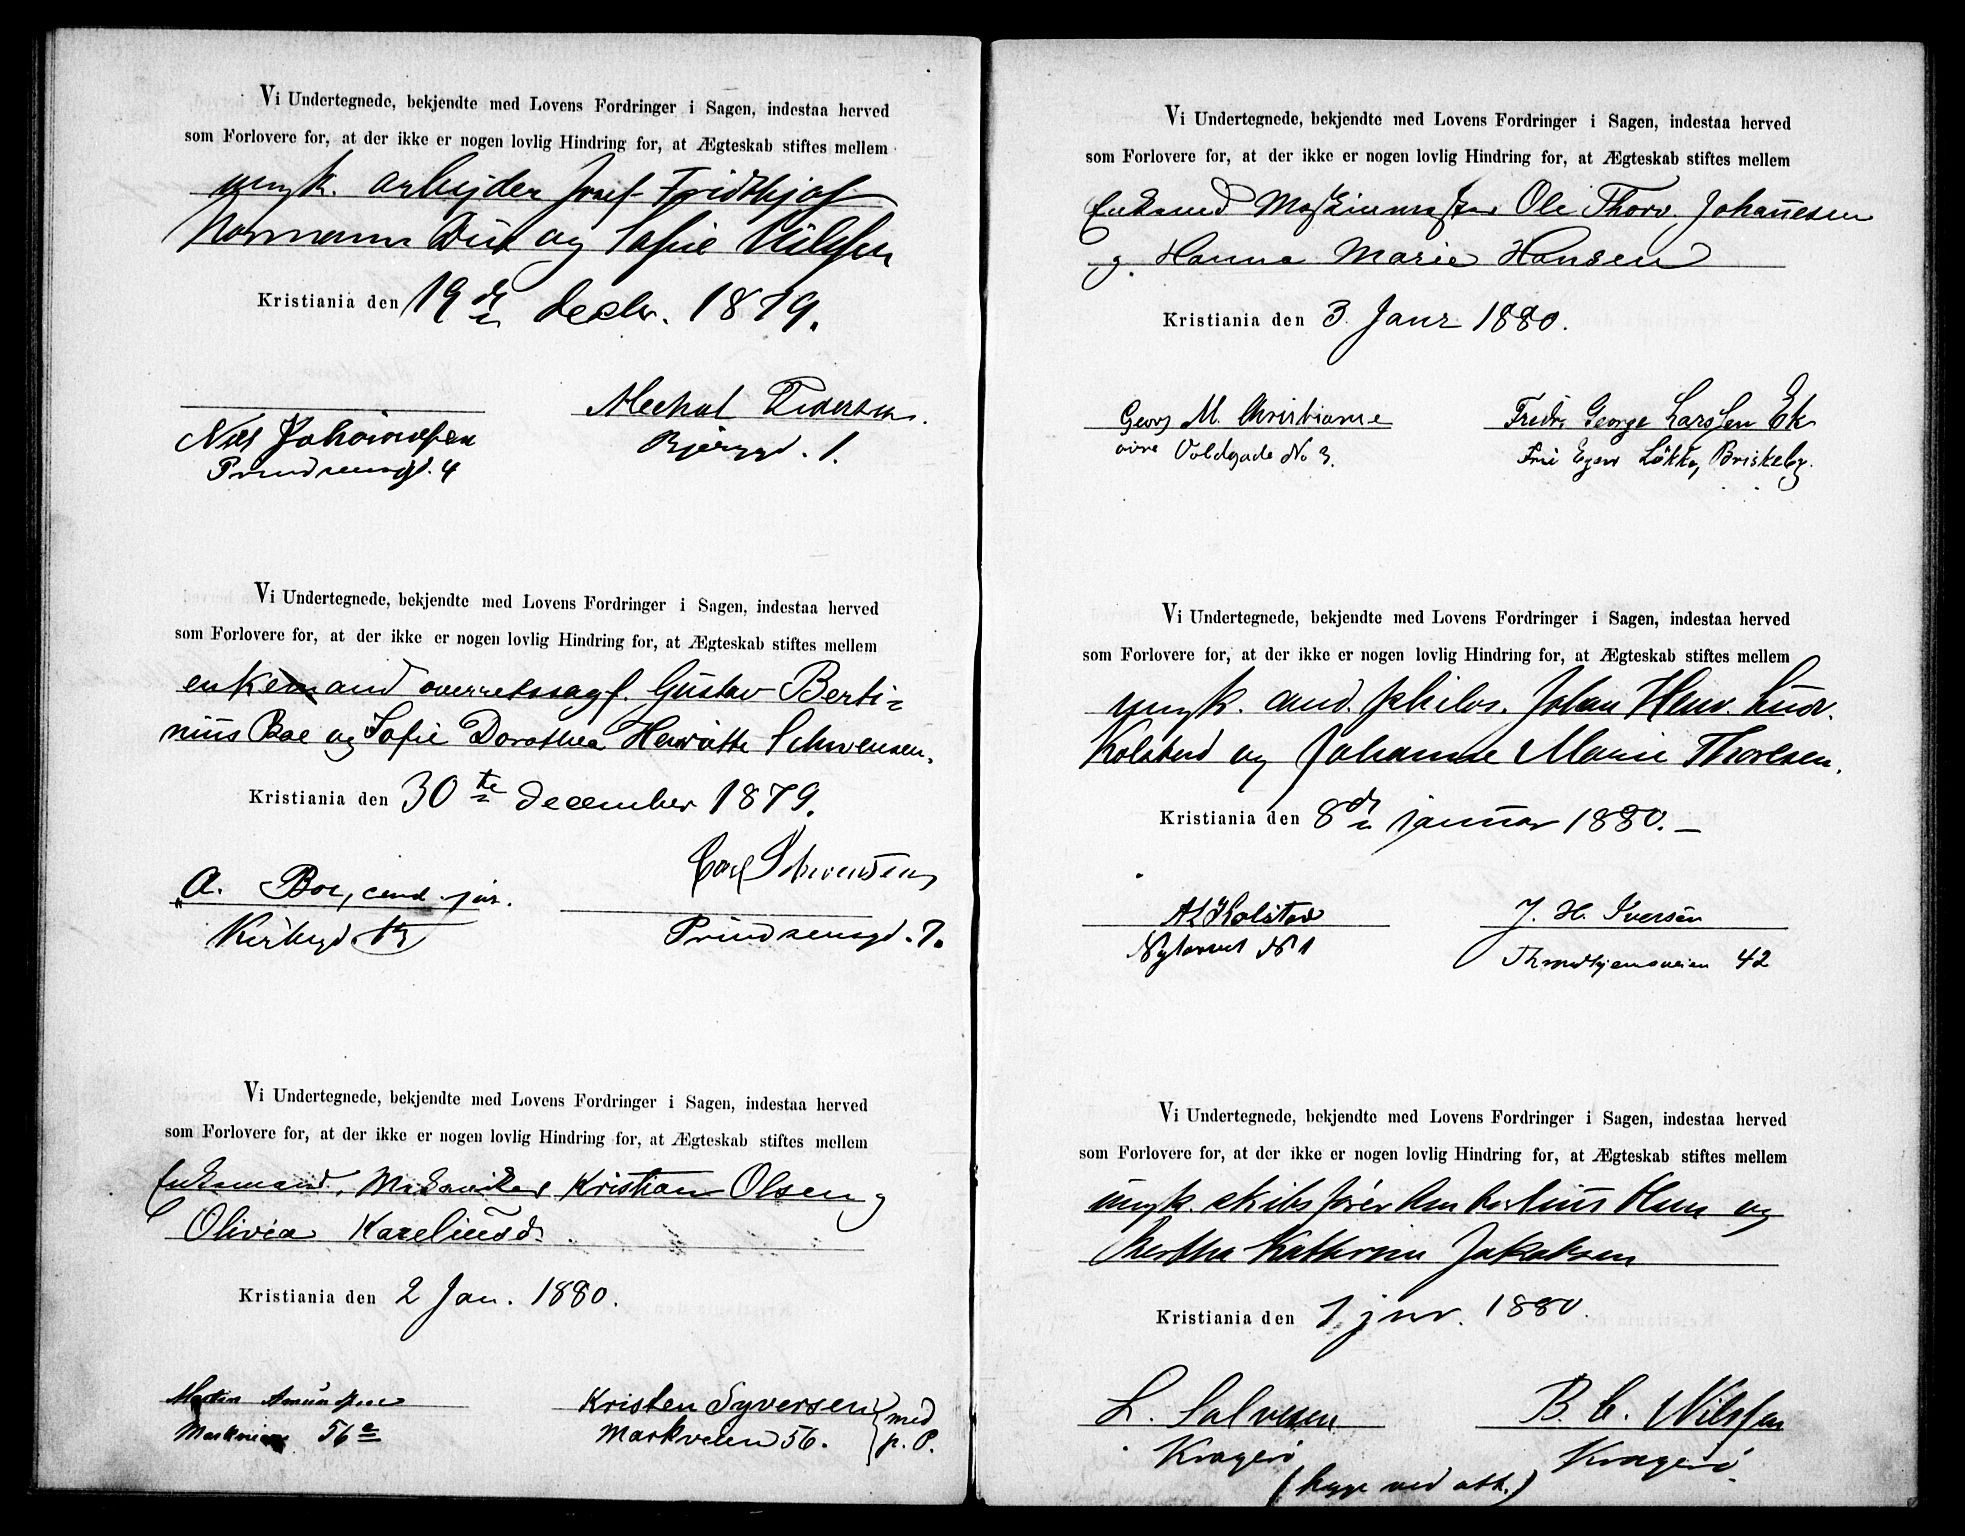 Vi Undertegnede, bekjendte med Lovens Fordringer i Sagen, indestaa herved
som Forlovere for, at der ikke er nogen lovlig Hindring for, at Ægteskab stiftes mellem
ungk. arbejder Josef Fridthjof
Normann og Sofie Nilssen
Kristiania den 19de decbr. 1879.
Mechal Pedersen.
Nils Johannessen
Prindsensgd. 4
Vi Undertegnede, bekjendte med Lovens Fordringer i Sagen, indestaa herved
som Forlovere for, at der ikke er nogen lovlig Hindring for, at Ægteskab stiftes mellem
enkemand overretssagf. Gustav Berti-
nius Boe og Sofie Dorothea Henriette Schwensen.
Kristiania den 30te december 1879.
Carl Schwensen
A. Boe, cand. jur.
Prindsensgd. 7.
Vi Undertegnede, bekjendte med Lovens Fordringer i Sagen, indestaa herved
som Forlovere for, at der ikke er nogen lovlig Hindring for, at Ægteskab stiftes mellem
Enkemand, Mekaniker Kristian Olsen og
Olivia Kareliusd.
Kristiania den 2 Jan. 1880.
Martin Amundsen
Markveien 56
Kristen Syversen
Markveien 56.
med p. P.
Vi Undertegnede, bekjendte med Lovens Fordringer i Sagen, indestaa herved
som Forlovere for, at der ikke er nogen lovlig Hindring for, at Ægteskab stiftes mellem
Enkemd Maskinmester Ole Thorv. Johannesen
og Hanna Marie Hansen
Kristiania den 3 Janr 1880.
Georg M. Christianse
øvre Voldgade No 3.
Fredr. George Larssen Ek
Løkke, Briskeby.
Vi Undertegnede, bekjendte med Lovens Fordringer i Sagen, indestaa herved
som Forlovere for, at der ikke er nogen lovlig Hindring for, at Ægteskab stiftes mellem
ungk. cand. philos. Johan Henr. Ludv.
Kolstad og Johanne Marie Thoresen.
Kristiania den 8de januar 1880.
Nytorvet No 1
J. H. Iversen
Throndhjemsveien 42
Vi Undertegnede, bekjendte med Lovens Fordringer i Sagen, indestaa herved
som Forlovere for, at der ikke er nogen lovlig Hindring for, at Ægteskab stiftes mellem
ungk. skibsfører og
Bertha Kathrine Jakobsen
Kristiania den 1 jnr. 1880.
L. Salvesen
Kragerø
B. C. Nilssen
Kragerø
(begge ved att.)